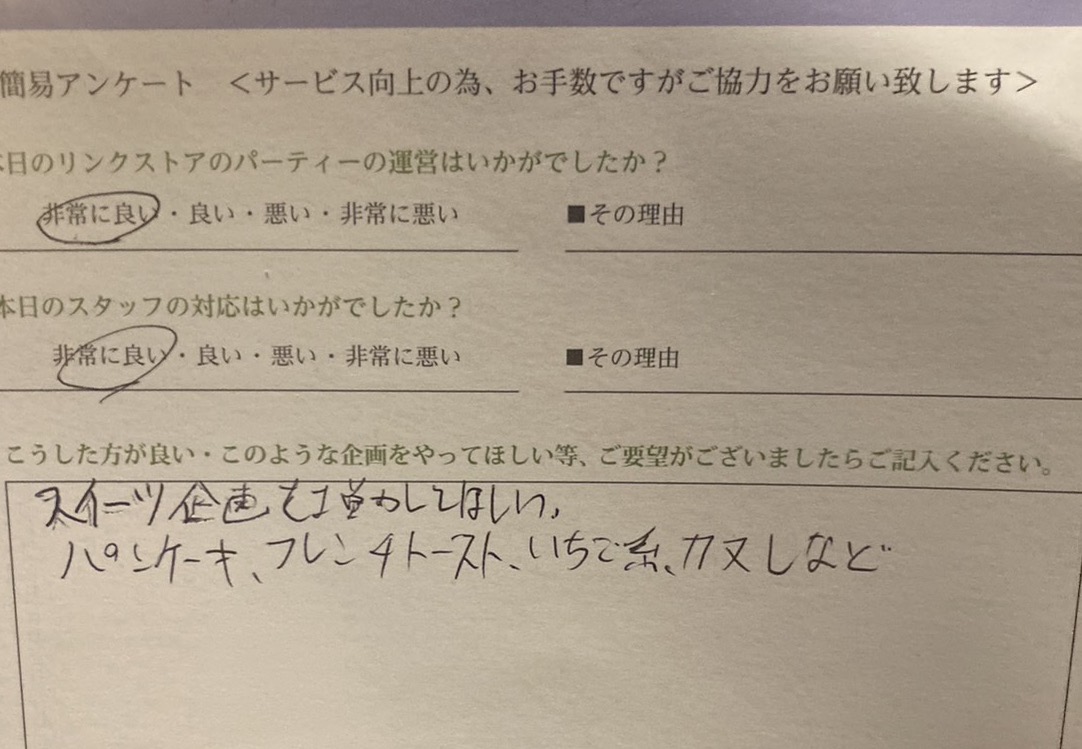 簡易アンケート <サービス向上の為、お手数ですがご協力をお願い致します>
本日のリンクストアのパーティーの運営はいかがでしたか?
非常に良い・良い・悪い・非常に悪い ■その理由
本日のスタッフの対応はいかがでしたか?
非常に良い・良い・悪い・非常に悪い ■その理由
こうした方が良い・このような企画をやってほしい等、ご要望がございましたらご記入ください。
スイーツ企画も増やしてほしい。
パンケーキ、フレンチトースト、いちご系、カヌレなど